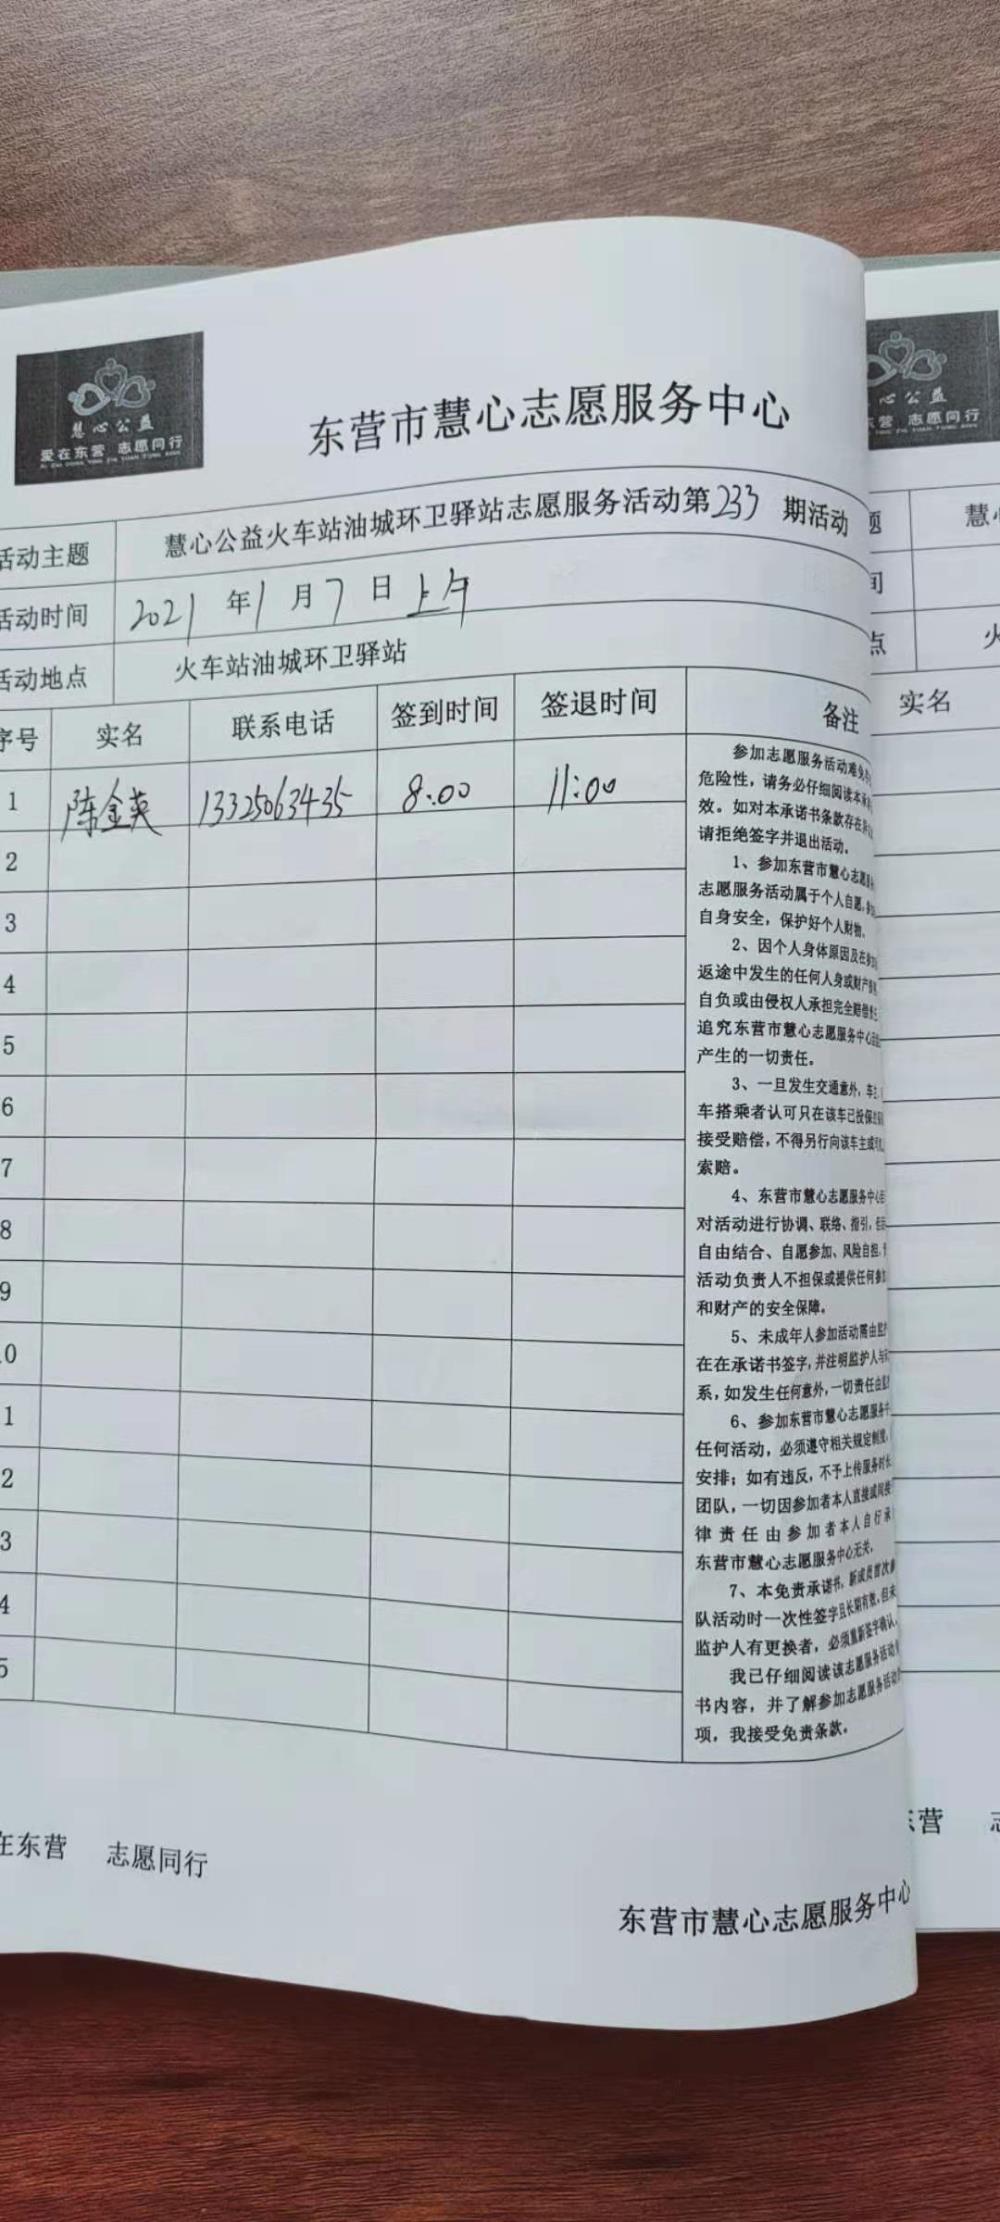 慧心公益
爱在东营 志愿同行
东营市慧心志愿服务中心
活动主题 慧心公益火车站油城环卫驿站志愿服务活动第233期活动
活动时间 2021年1月7日上午
活动地点 火车站油城环卫驿站
序号 实名 联系电话 签到时间 签退时间 备注
1 陈金英 13325063435 8:00 11:00
2
3
4
5
6
7
8
9
10
1
2
3
4
5
参加志愿服务活动难免
危险性，请务必仔细阅读本承
效。如对本承诺书条款存在
请拒绝签字并退出活动。
1、参加东营市慧心志愿
志愿服务活动属于个人自愿，
自身安全，保护好个人财物。
2、因个人身体原因及在
返途中发生的任何人身或财产
自负或由侵权人承担完全赔偿
追究东营市慧心志愿服务中心
产生的一切责任。
3、一旦发生交通意外，车主、
车搭乘者认可只在该车已投保
接受赔偿，不得另行向该车主或
索赔。
4、东营市慧心志愿服务中心
对活动进行协调、联络、指引，
自由结合、自愿参加、风险自担，
活动负责人不担保或提供任何参加
和财产的安全保障。
5、未成年人参加活动需由监护
在在承诺书签字，并注明监护人与
系，如发生任何意外，一切责任由监
6、参加东营市慧心志愿服务中
任何活动，必须遵守相关规定制度，
安排；如有违反，不予上传服务时长
团队，一切因参加者本人直接或间接
律责任由参加者本人自行承
东营市慧心志愿服务中心无关。
7、本免责承诺书，新成员首次参
队活动时一次性签字且长期有效，但未
监护人有更换者，必须重新签字确认。
我已仔细阅读该志愿服务活动
书内容，并了解参加志愿服务活动
项，我接受免责条款。
在东营 志愿同行
东营市慧心志愿服务中心
心公益
东营 志愿同行
题 慧
间
点 火
实名
东营 志